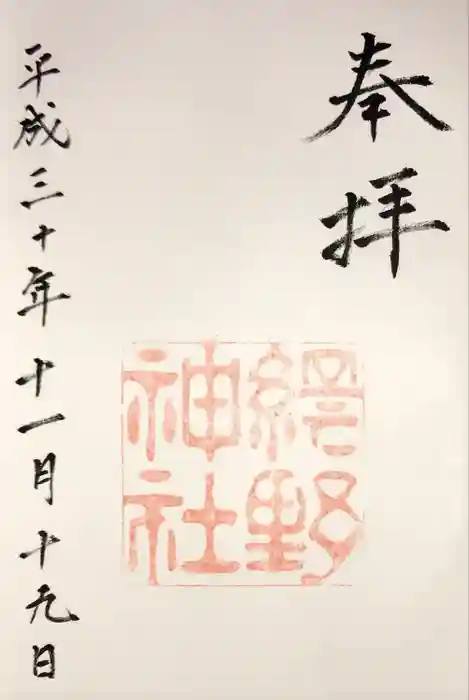 奉拝
野
神社
平成三十年十一月十九日